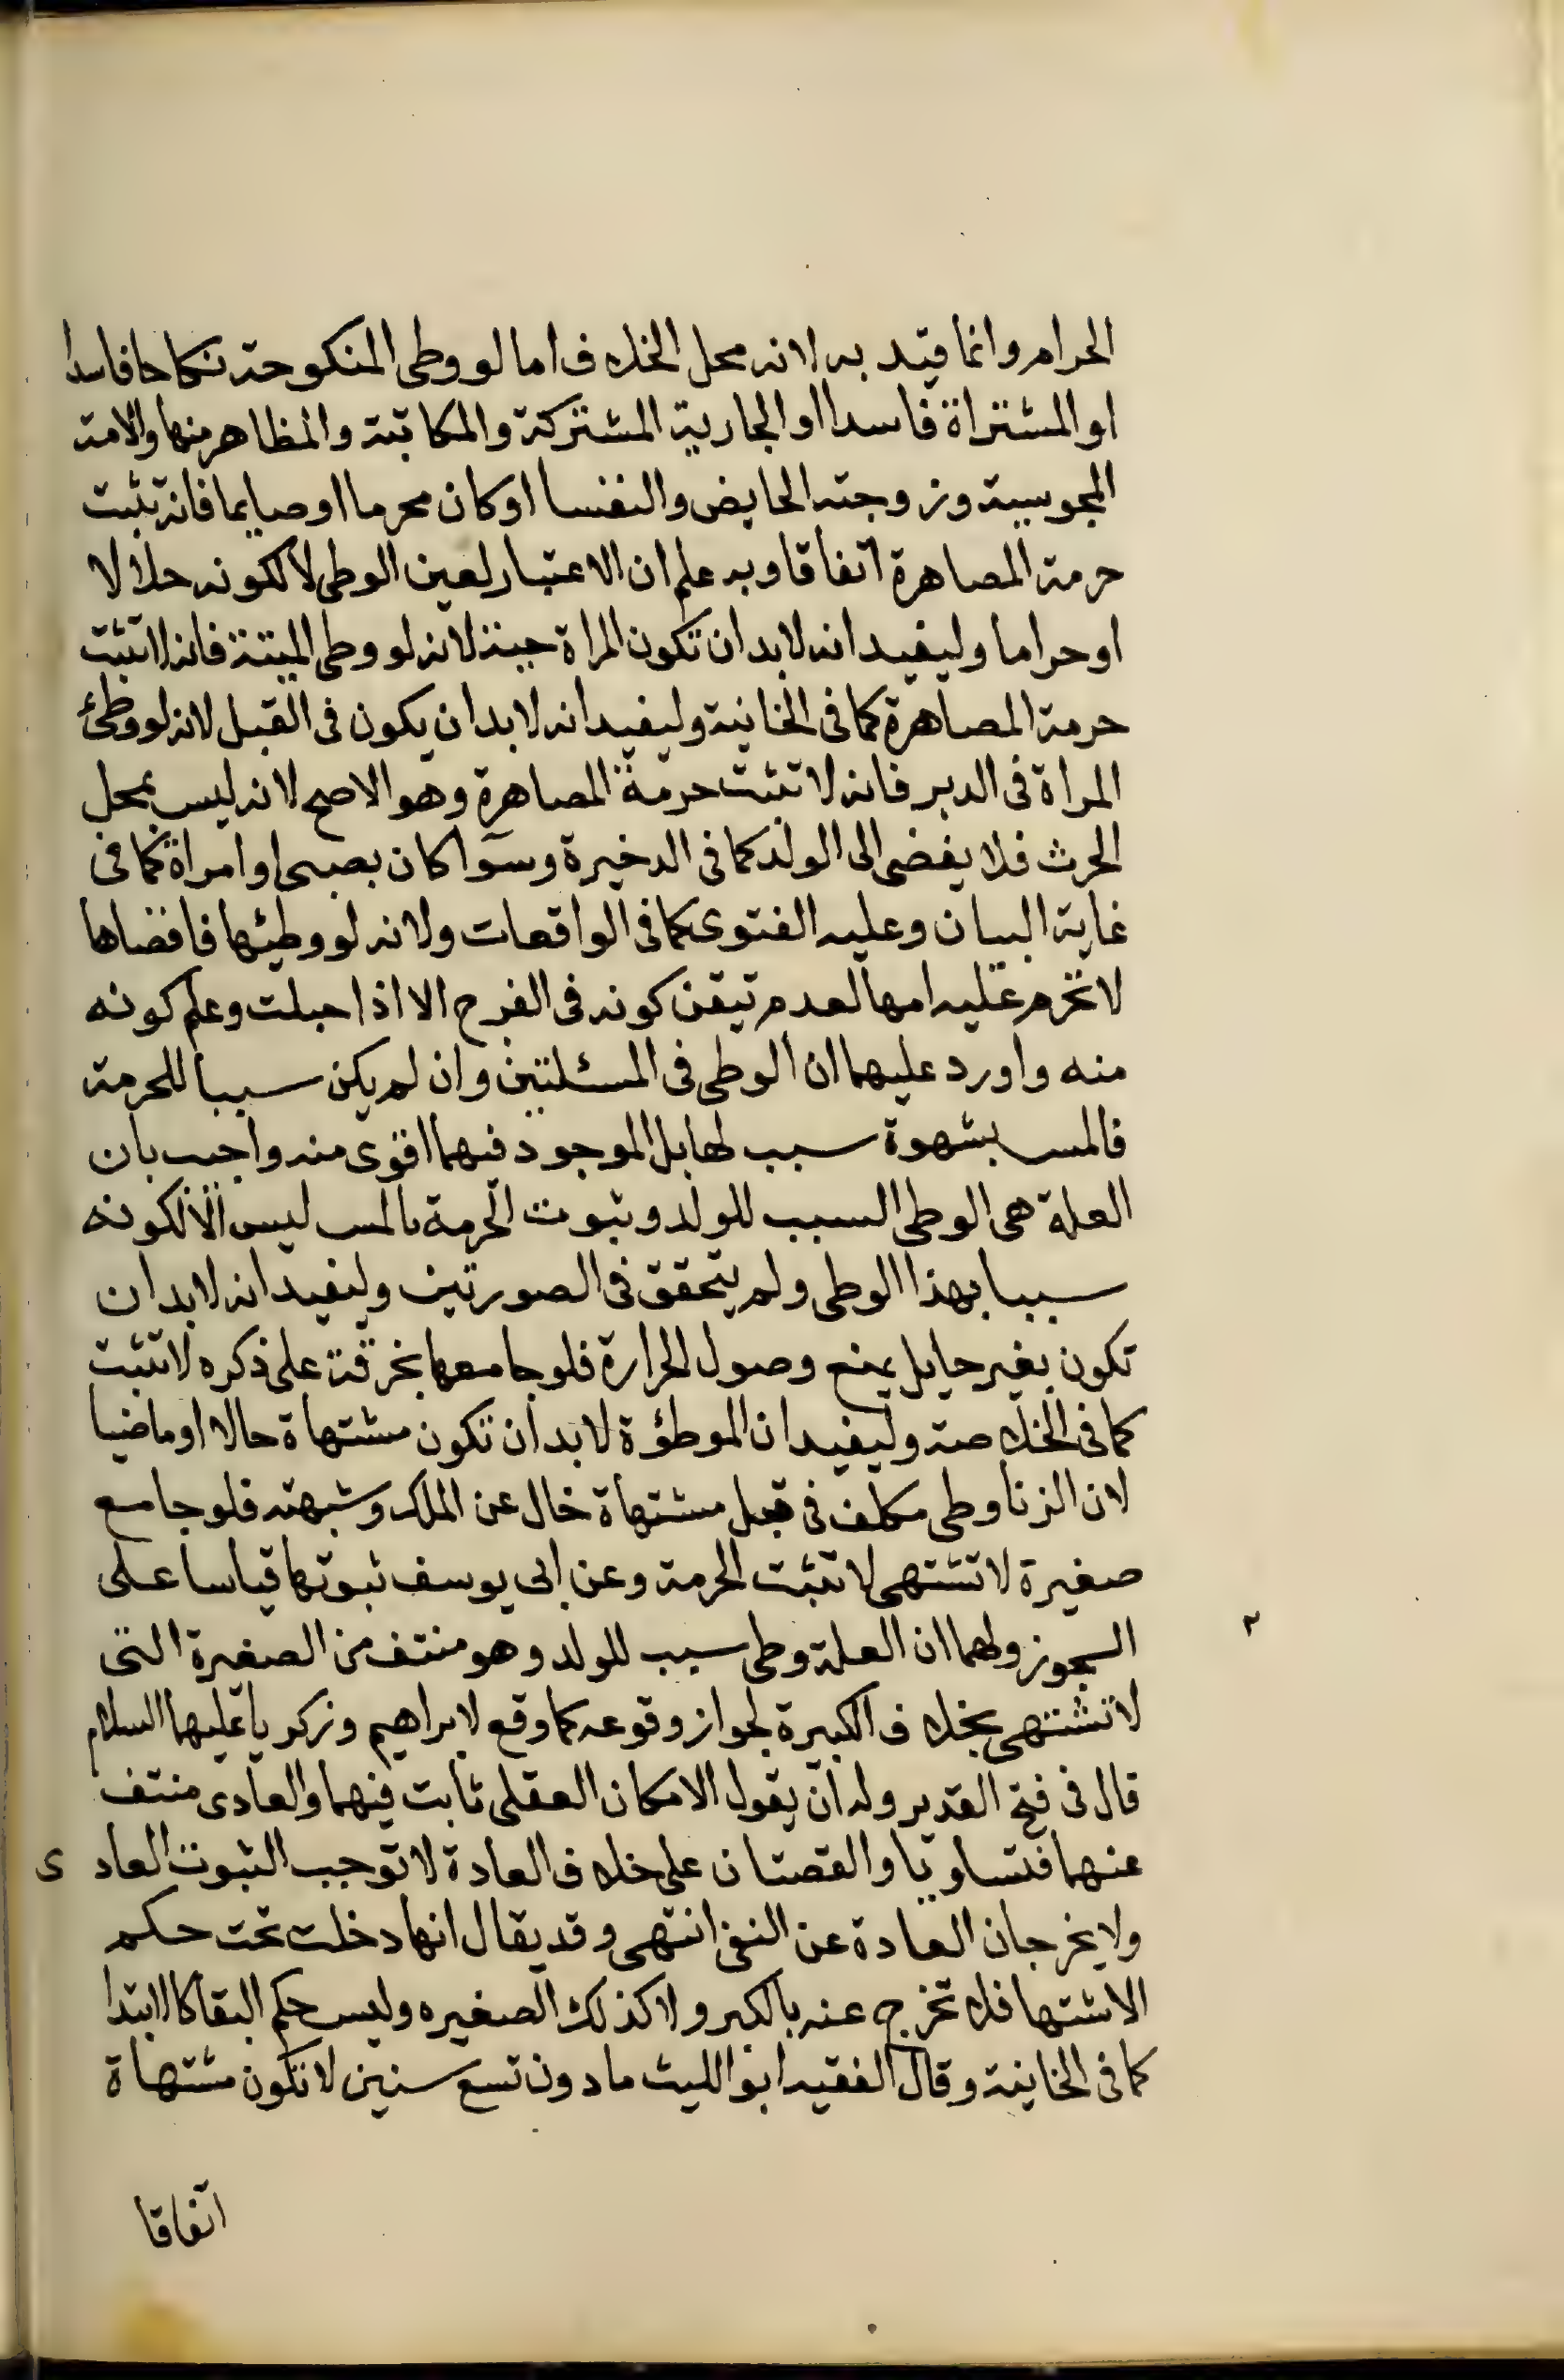 الحرام وانما قيد به لانه محل الخلاف اما لو وطى المنكوحة نكاحا فاسدا
او المشتراة فاسدا او الجارية المشتركة والمكاتبة والمظاهر منها والامة
المجوسية وزوجته الحايض والنفسا او كان محرما او صايما فانه تثبت
حرمة المصاهرة اتفاقا وبه علم ان الاعتبار لعين الوطى لا لكونه حلالا
او حراما وليفيد انه لا بد ان تكون المراة حية لانه لو وطى الميتة فانه لا تثبت
حرمة المصاهرة كما فى الخانية وليفيد انه لا بد ان يكون فى القبل لانه لو وطئ
المراة فى الدبر فانه لا تثبت حرمة المصاهرة وهو الاصح لانه ليس بمحل
الحرث فلا يفضى الى الولد كما فى الدخيرة وسوا كان بصبى او امراة كما فى
غاية البيان وعليه الفتوى كما فى الواقعات ولانه لو وطيئها فافضاها
لا تحرم عليه امها لعدم تيقن كونه فى الفرج الا اذا حبلت وعلم كونه
منه واورد عليهما ان الوطى فى المسئلتين وان لم يكن سببا للحرمة
فالمس بشهوة سبب لها بل الموجود فيهما اقوى منه واجيب بان
العلة هى الوطى السبب للولد وثبوت الحرمة بالمس ليس الا لكونه
سببا بهذا الوطى ولم يتحقق فى الصورتين وليفيد انه لا بد ان
تكون بغير حايل يمنع وصول الحرارة فلو جامعها بخرقة على ذكره لا تثبت
كما فى الخلاصة وليفيد ان الموطؤة لا بد ان تكون مشتهاة حالا او ماضيا
لان الزنا وطى مكلف فى قبل مشتهاة خال عن الملك وشبهته فلو جامع
صغيرة لا تشتهى لا تثبت الحرمة وعن ابى يوسف ثبوتها قياسا على
العجوز ولهما ان العلة وطى سبب للولد وهو منتف من الصغيرة التى
لا تشتهى بخلاف الكبيرة لجواز وقوعه كما وقع لابراهيم وزكريا عليهما السلام
قال فى فتح القدير وله ان يقول الامكان العقلى ثابت فيهما والعادى منتف
عنهما فتساويا والقصتان على خلاف العادة لا توجب الثبوت العادى
ولا يخرجان العادة عن النفى انتهى وقد يقال انها دخلت تحت حكم
الاشتها فلا تخرج عنه بالكبر ولا كذلك الصغيره وليس حكم البقا كالابتدا
كما فى الخانية وقال الفقيه ابو الليث ما دون تسع سنين لا تكون مشتهاة
اتفاقا